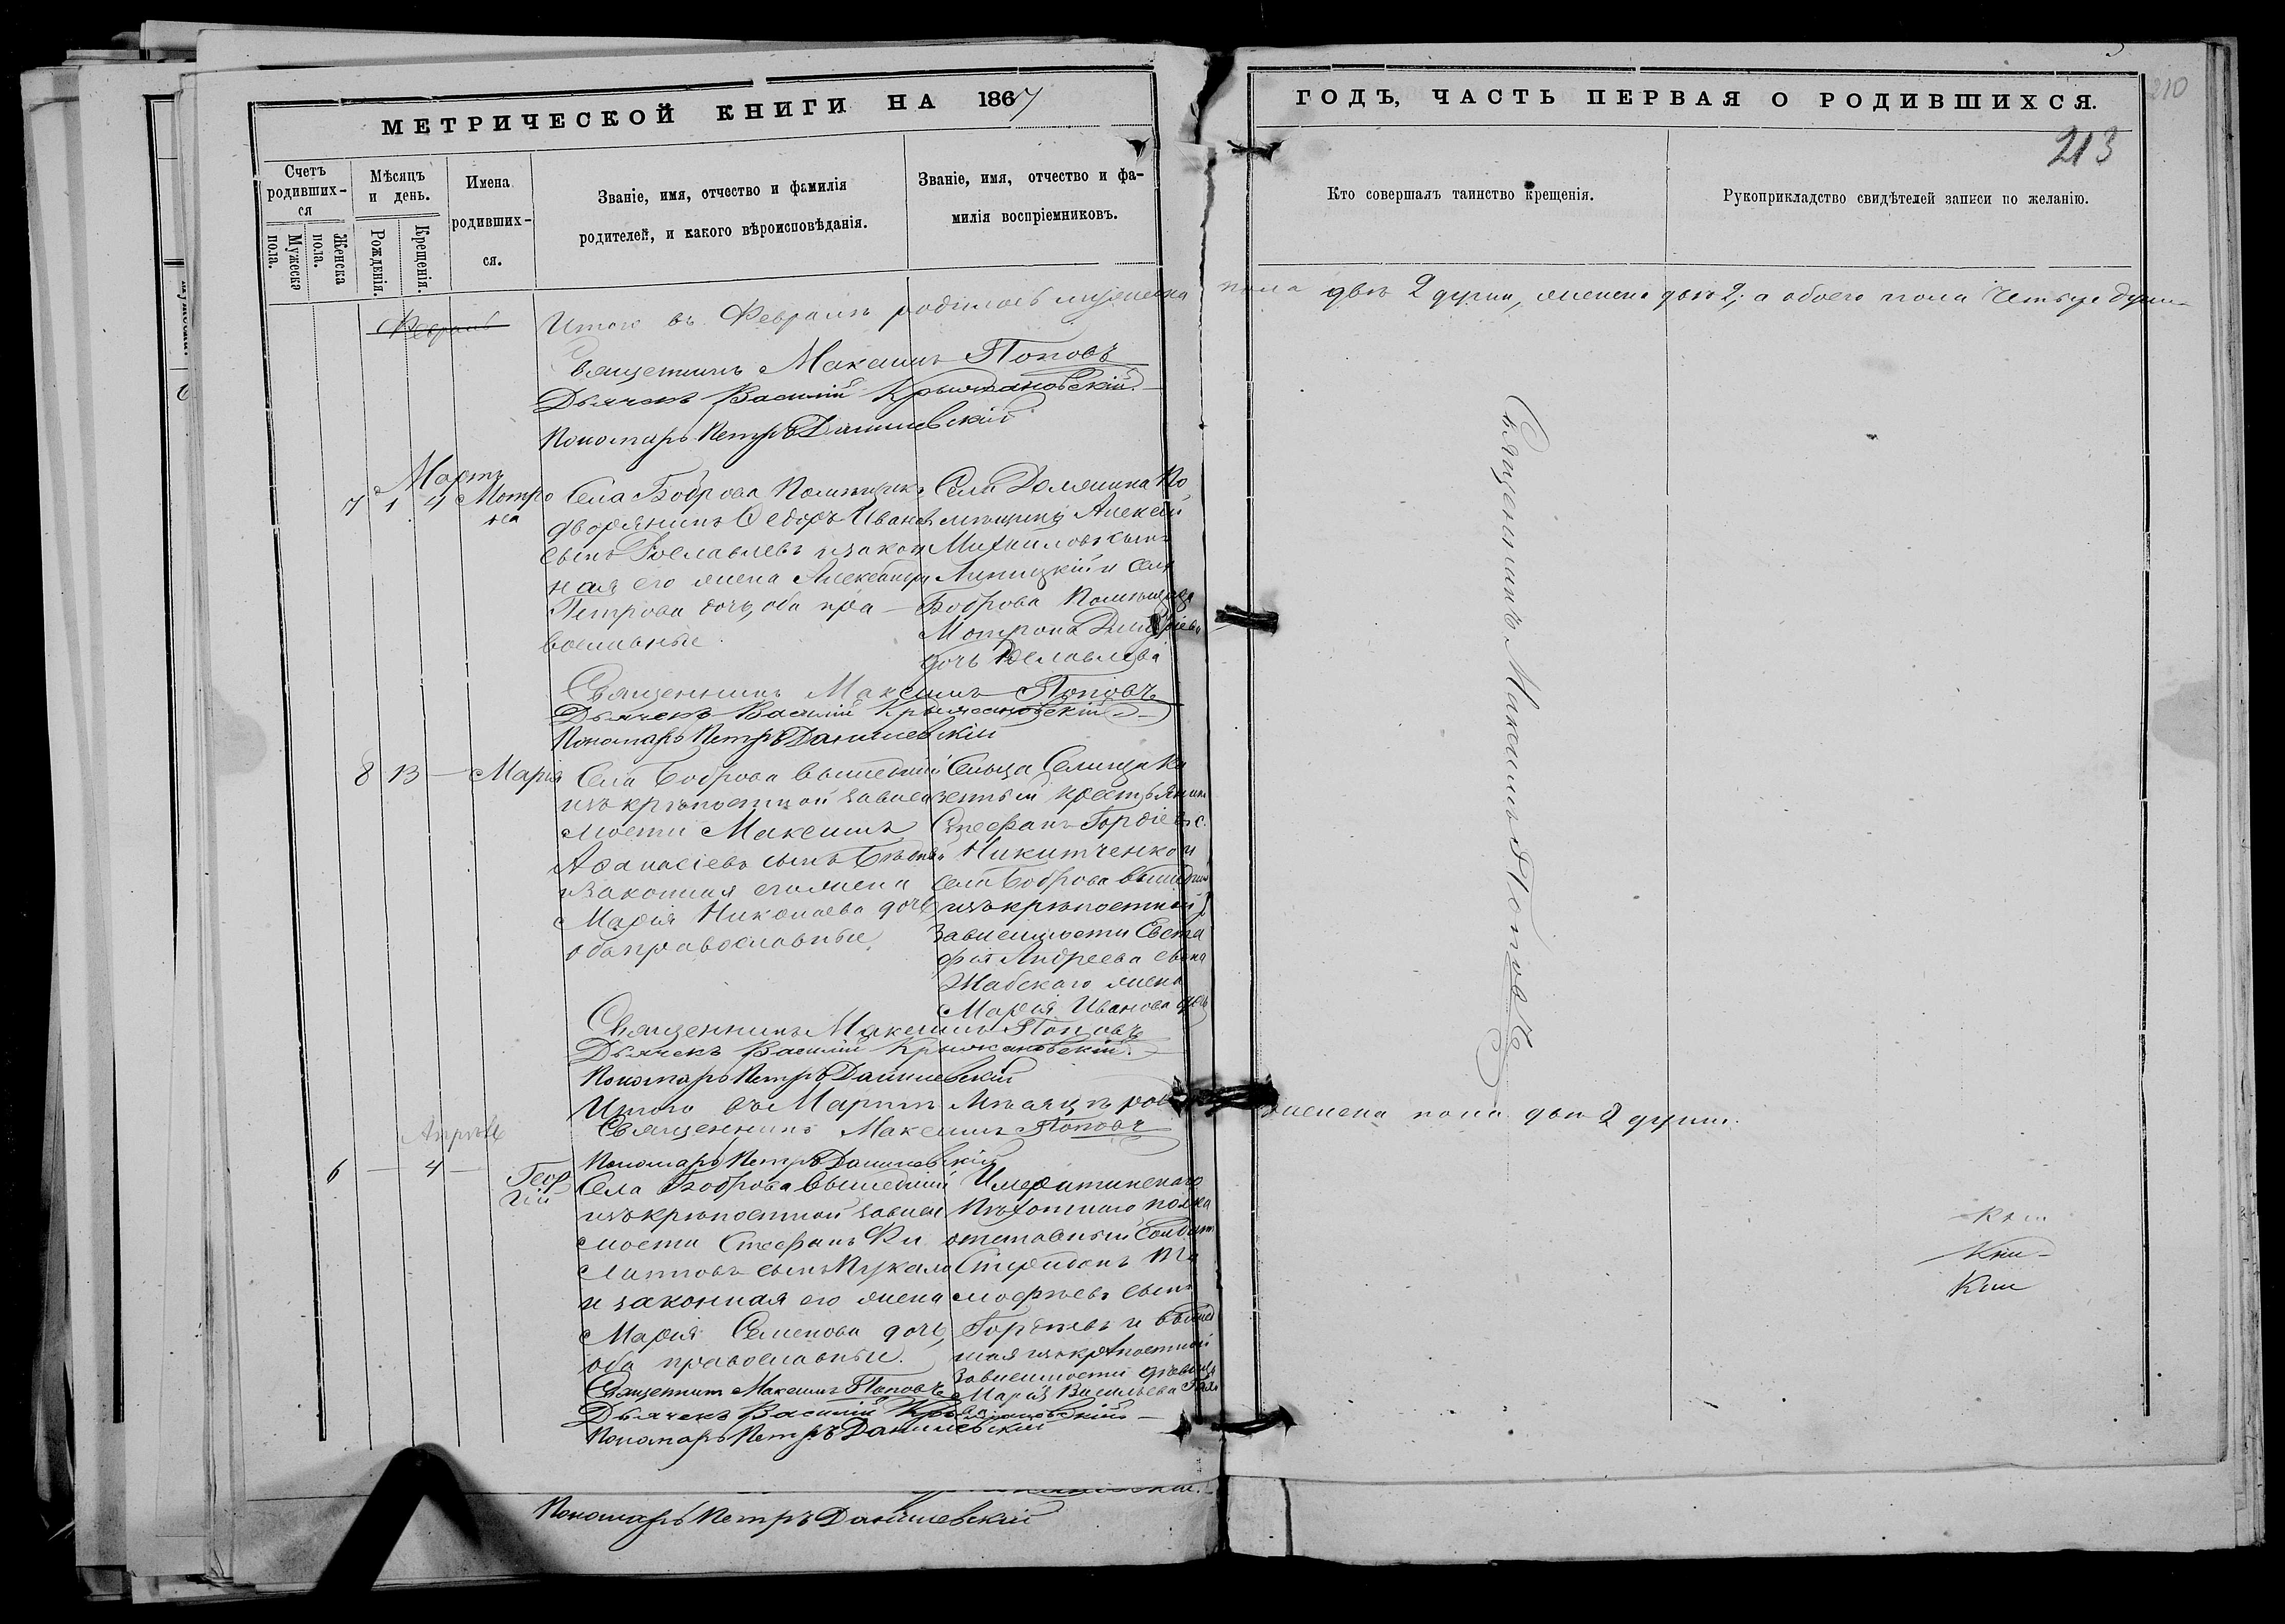 МЕТРИЧЕСКОЙ КНИГИ НА 1867
Счетъ родившихся
Мужеска пола.
Женска пола.
Мѣсяцъ и день.
Рожденія.
Крещенія.
Имена родившихся.
Званіе, имя, отчество и фамилія
родителей, и какого вѣроисповѣданія.
Званіе, имя, отчество и фа-
милія воспріемниковъ.
ГОДЪ, ЧАСТЬ ПЕРВАЯ О РОДИВШИХСЯ.
210
213
Кто совершалъ таинство крещенія.
Рукоприкладство свидѣтелей записи по желанію.
Февраль
Итого въ Февралѣ родилось мужеска пола двѣ 2 души, женска двѣ 2, а обоего пола четыре души
Священникъ Максимъ Поповъ
Дьячекъ Василій Крыжановскій
Пономарь Петръ Данилевскій
Мартъ
7 1 4 Мотро
на
Села Боброва Помѣщикъ
дворянинъ Ѳедоръ Ивановъ
сынъ Рославлевъ и закон
ная его жена Александра
Петрова дочь, оба пра-
вославные.
Села Должика По
мѣщикъ Алексѣй
Михаиловъ сынъ
Липицкій и села
Боброва Помѣщица
Мотрона Дмитріева
дочь Рославлева
Священникъ Максимъ Поповъ
Дьячекъ Василій Крыжановскій
Пономарь Петръ Данилевскій
8 13 — Марія
Села Боброва вышедшій
изъ крѣпостной зависи
мости Максимъ
Аѳанасіевъ сынъ
и законная его жена
Марія Николаева дочь
оба православные.
Сельца Селища Ка
зенный крестьянинъ
Стефанъ Гордіевъ с.
Никитченко и
села Боброва вышедшій
изъ крѣпостной
зависимости Евста
фія Андреева сына
Жабскаго жена
Марія Иванова дочь
Священникъ Максимъ Поповъ
Дьячекъ Василій Крыжановскій
Пономарь Петръ Данилевскій
Итого въ Мартѣ Мѣсяцѣ женска пола двѣ 2 души.
Священникъ Максимъ Поповъ
Пономарь Петръ Данилевскій
Апрѣль
6 — 4 — Геор
гій
Села Боброва вышедшій
изъ крѣпостной зависи
мости Стефанъ Фи
липповъ сынъ
и законная его жена
Марія Семенова дочь,
оба православные.
Имеритинскаго
Пѣхотнаго полка
отставный Солдатъ
Спиридонъ Ти
мофѣевъ сынъ
Гордѣевъ и вышед
шая изъ крѣпостной
зависимости
Марія Васильева
Священникъ Максимъ Поповъ
Дьячекъ Василій Крыжановскій
Пономарь Петръ Данилевскій
Пономарь Петръ Данилевскій
Священникъ Максимъ Поповъ